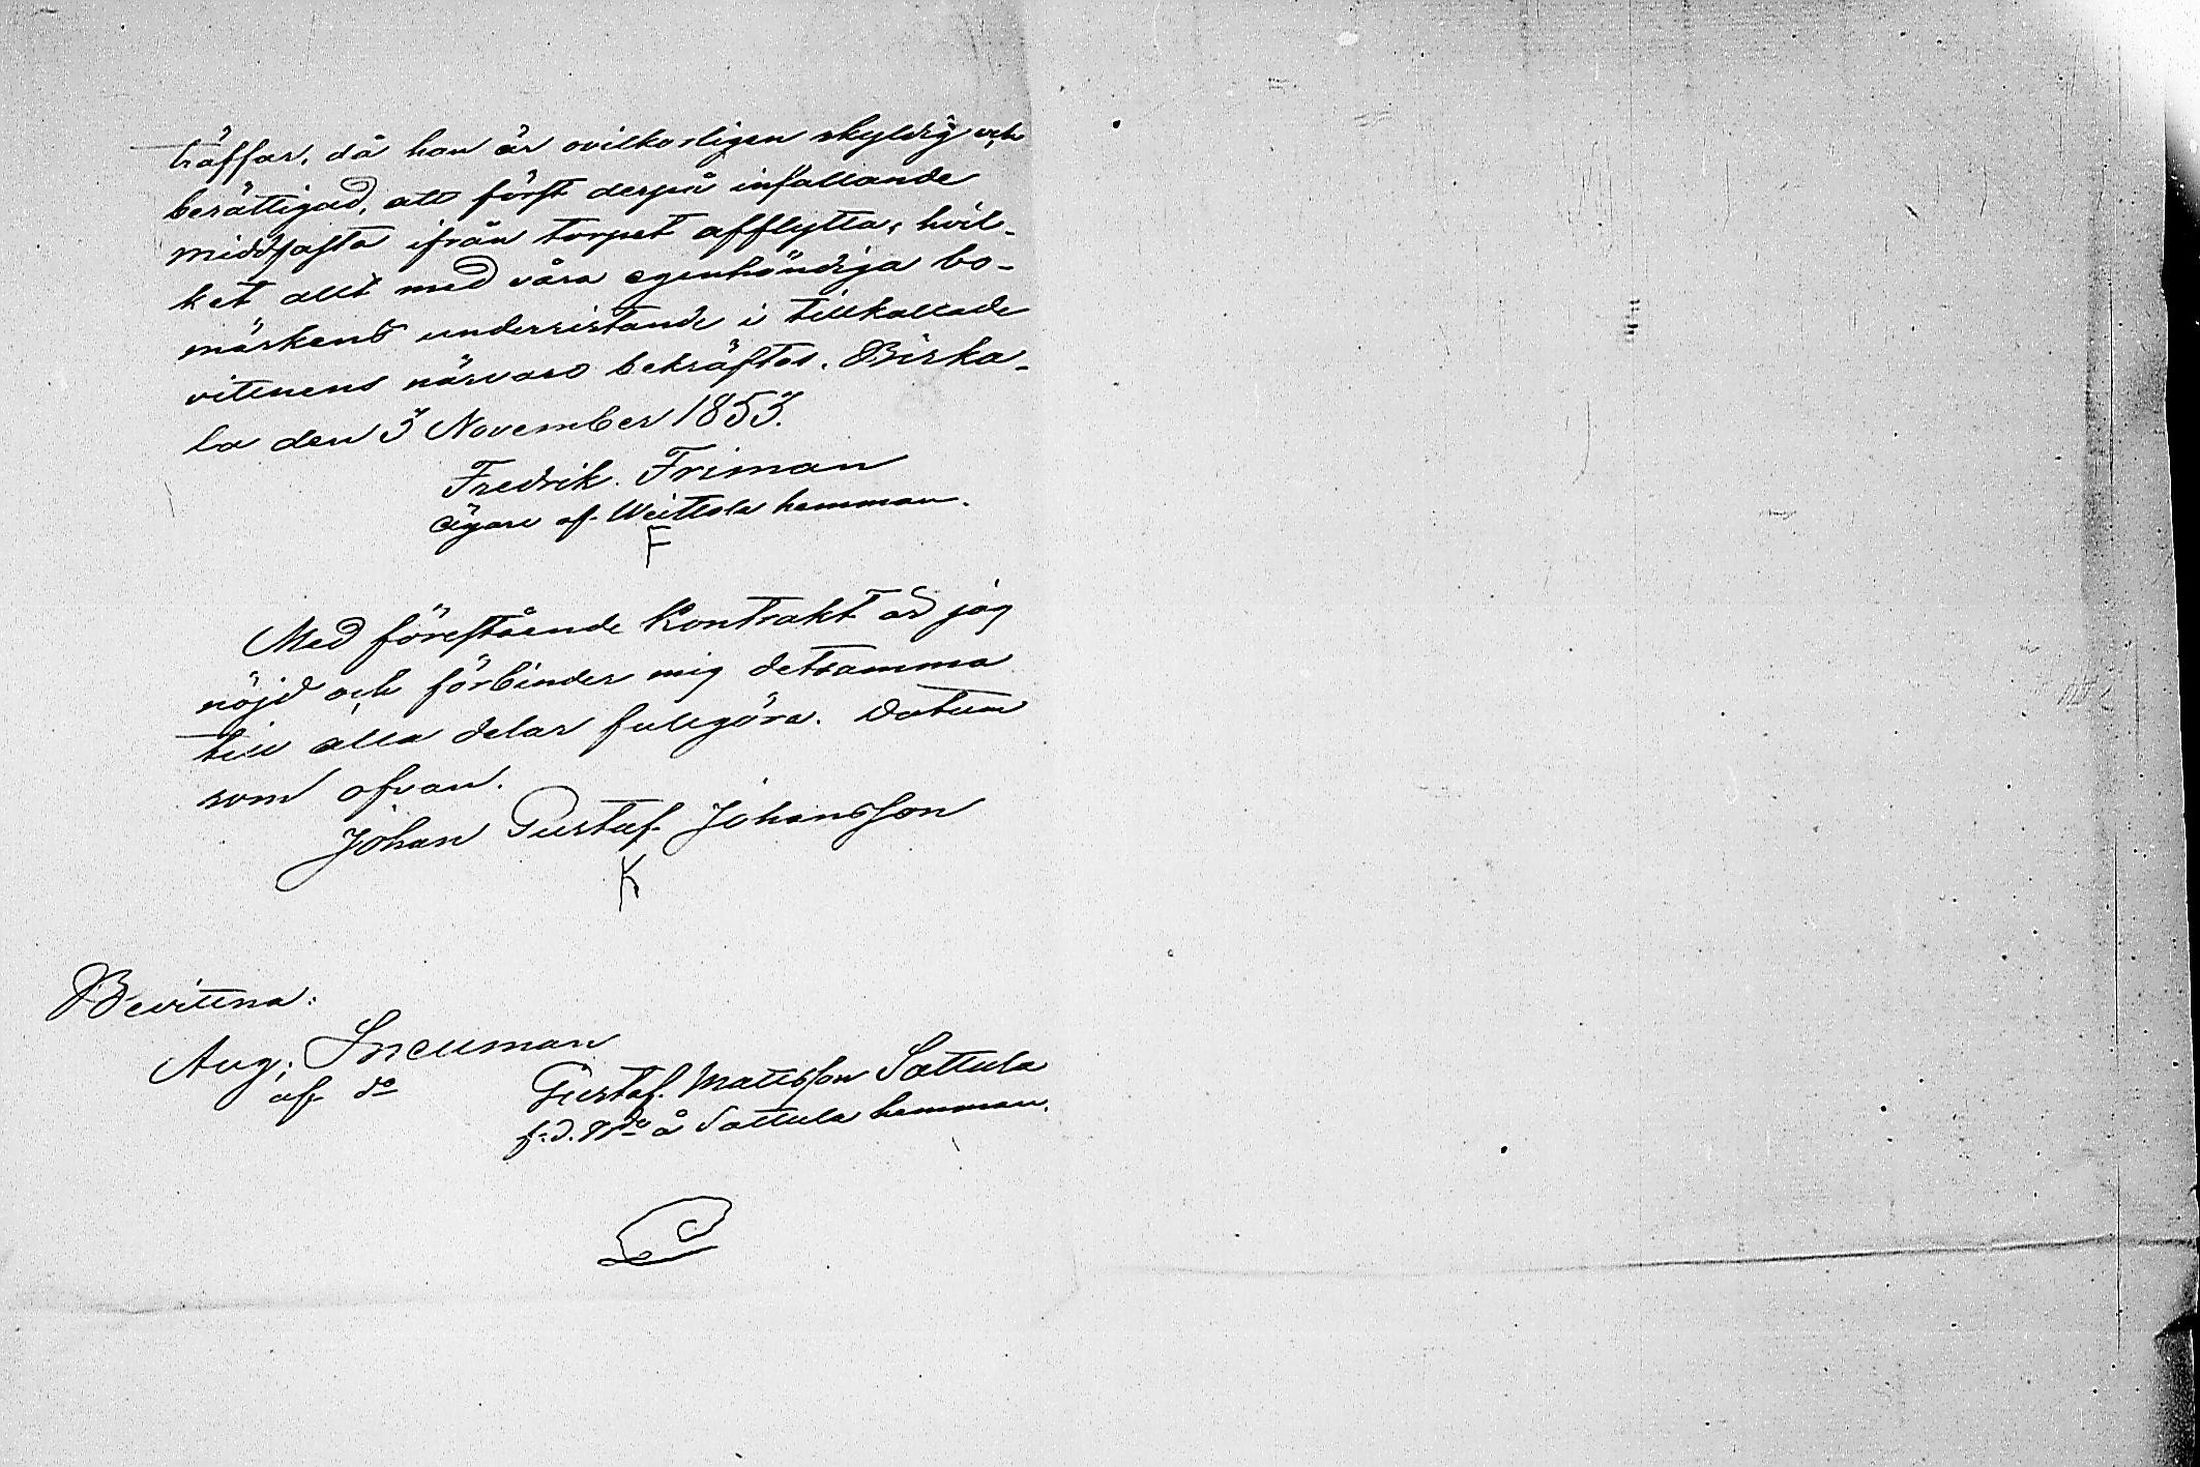 träffar, då han är ovilkorligen skyldig och
berättigad, att först derpå infallande
middfasta ifrån torpet afflytta; hvil-
ket allt med våra egenhändiga bo-
märkens undersistande i tillkallade
vittnens närvaro bekräftas. Birka-
la den 3 November 1853.
Fredrik Friman
ägare af Weittola hemman.
F
Med förestående Kontrakt är jag
nöjd och förbinder mig detsamma
till alla delar fullgöra. Datum
som ofvan.
Johan Gustaf Johansson
K
Bevittna:
Aug: Sneuman
af do
Gustaf Mattsson Sattula
f.d. å Sattula hemman.